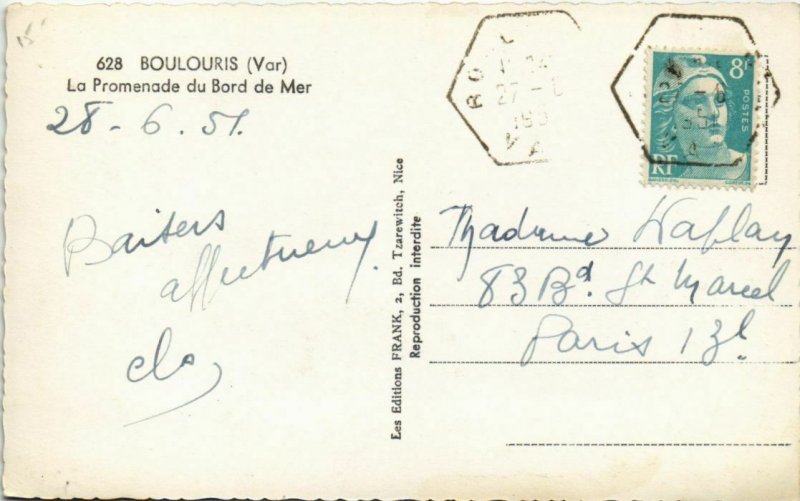 628 BOULOURIS (Var)
La Promenade du Bord de Mer
28-6.51.
Baisers
affectueux
clo
Les Editions FRANK, 2, Bd. Tzarewitch, Nice
Reproduction interdite
27-6
195
VA
8F
POSTES
RF
Madame
83 Bd. St Marcel
Paris 13e